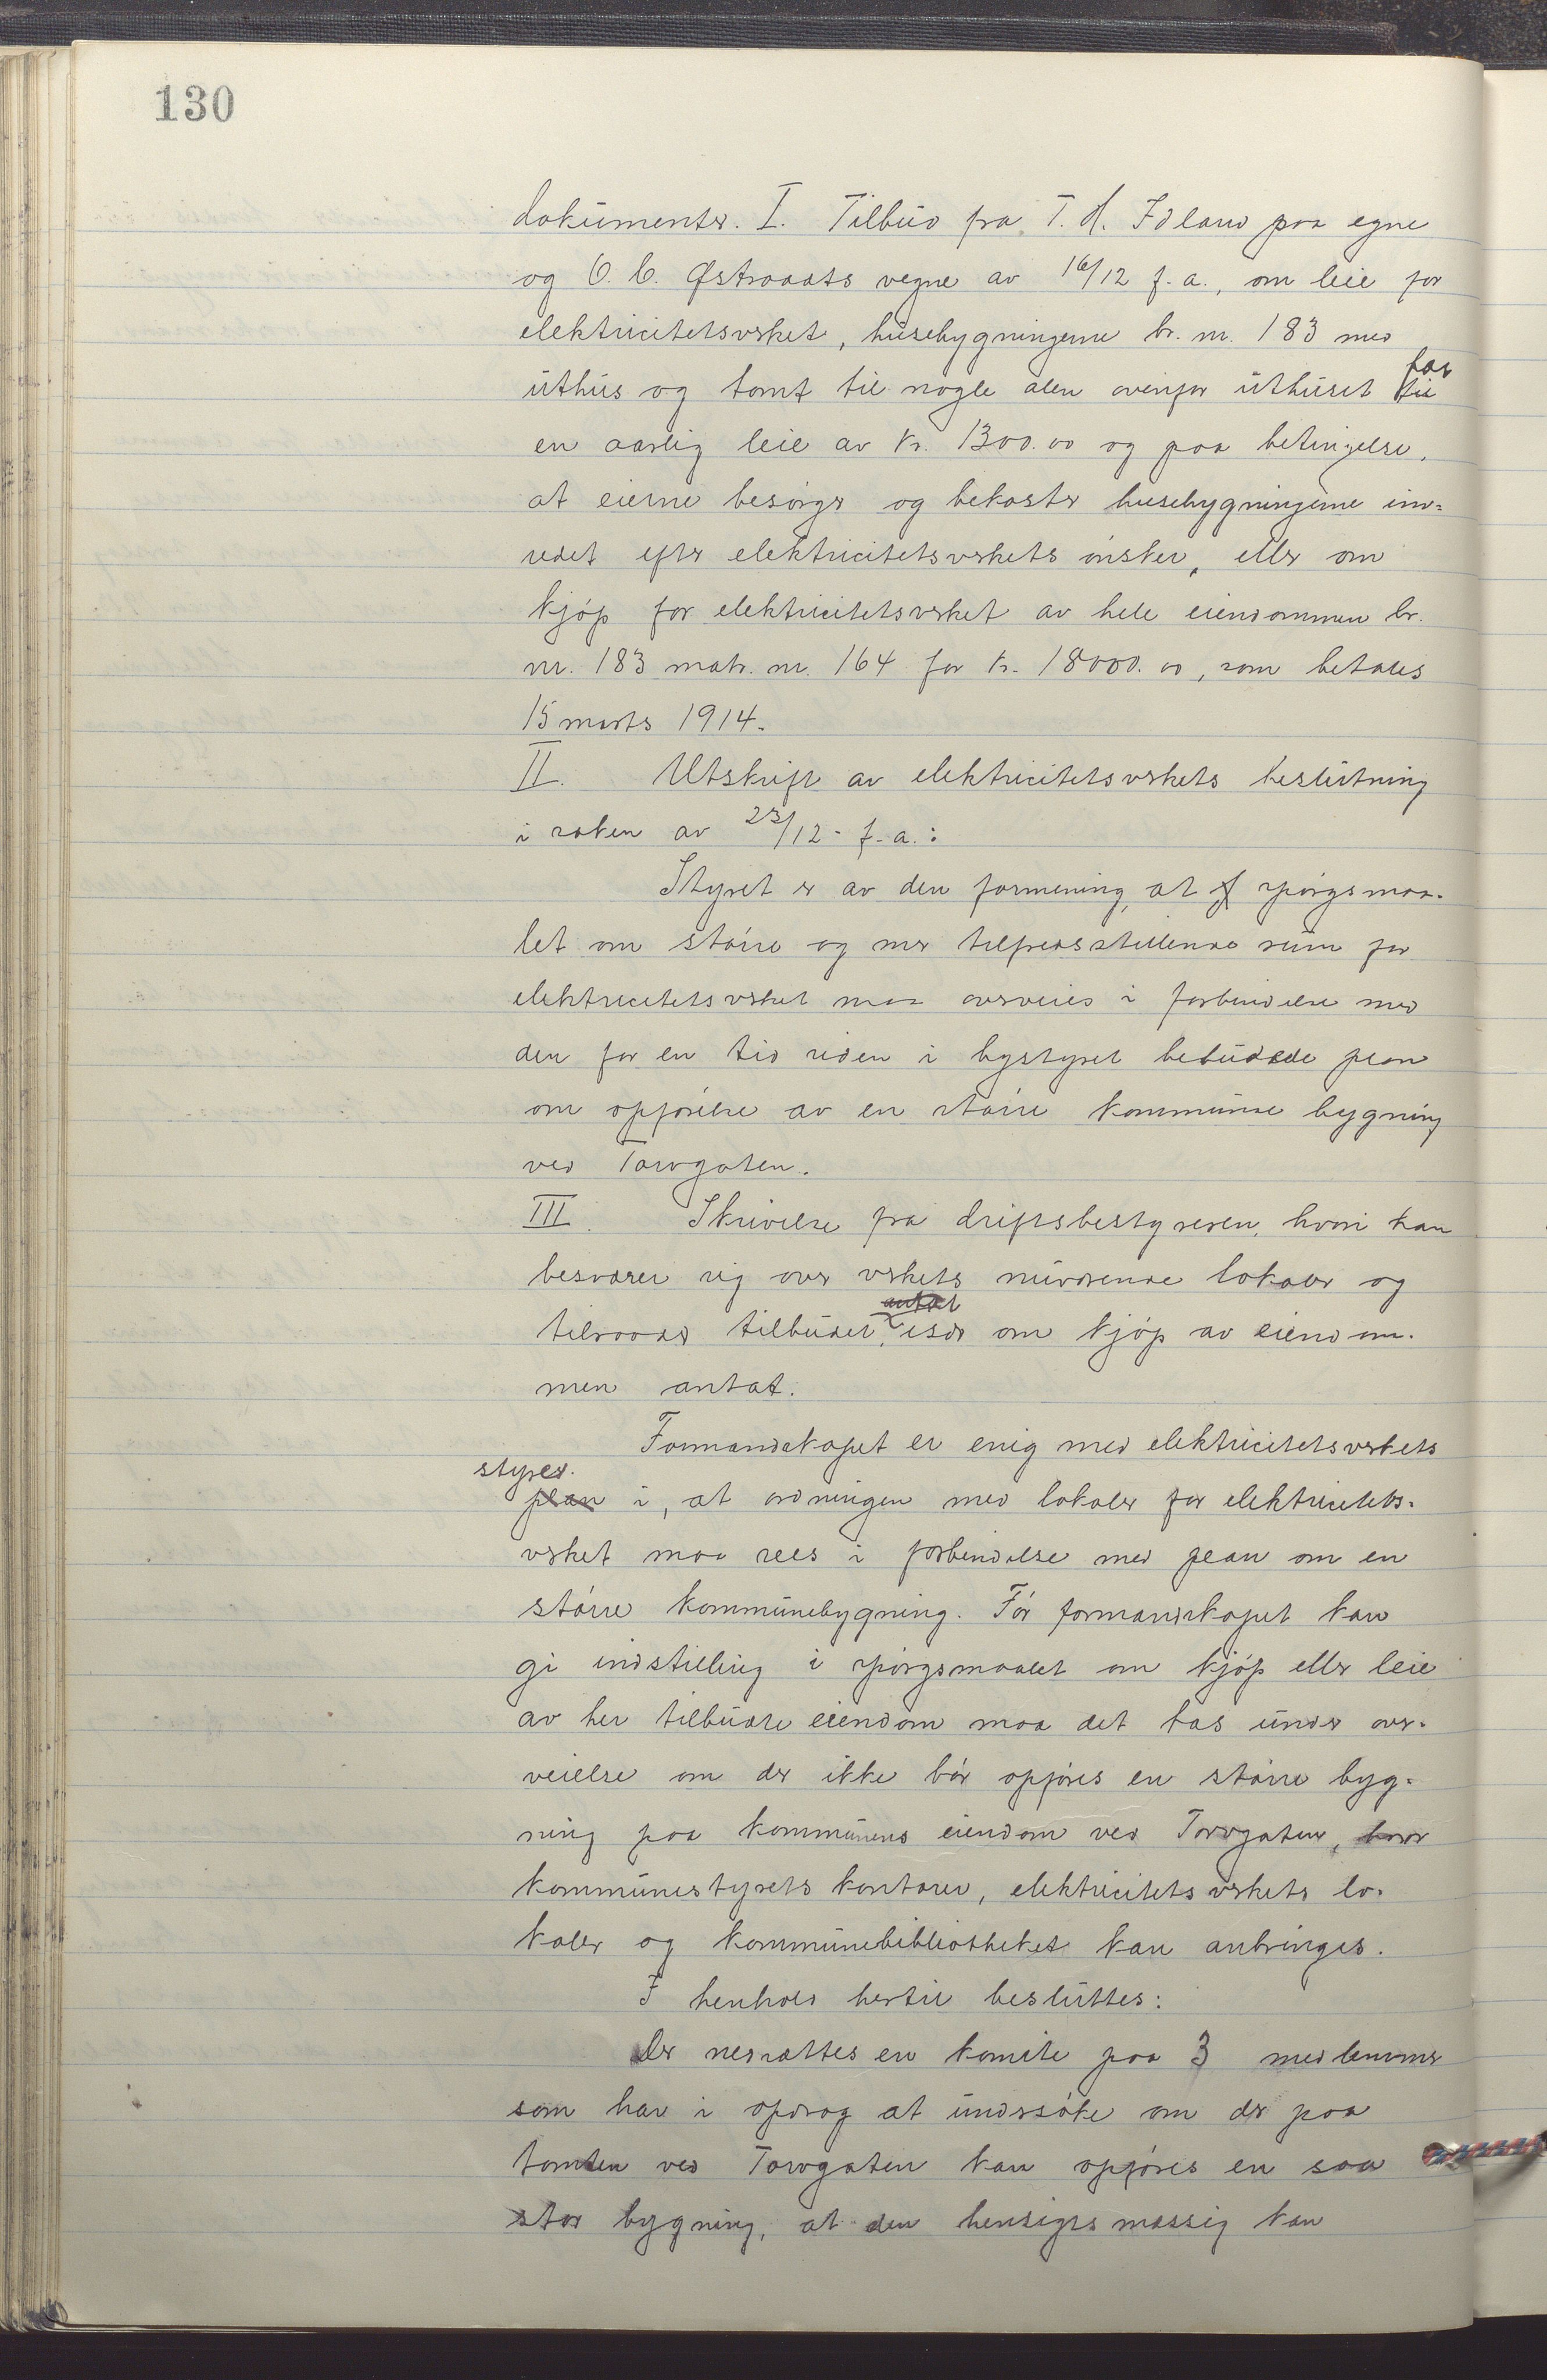 130
dokumenter. I. Tilbud fra T. H. Idland paa egne
og O. C. Østraadts vegne av 16/12 f. a., om leie for
elektricitetsverket, husebygningerne br. nr. 183 med
uthus og tomt til nogle alen ovenfor uthuset for til
en aarlig leie av kr. 1300.00 og paa betingelse,
at eierne besørger og bekoster husebygningerne ind-
redet efter elektricitetsverkets ønsker, eller om
kjøp for elektricitetsverket av hele eiendommen br.
nr. 183 matr. nr. 164 for kr. 18000.00, som betales
15 marts 1914.
II. Utskrift av elektricitetsverkets beslutning
i saken av 23/12 - f. a.:
Styret er av den formening, at spørgsmaa-
let om større og mer tilfredsstillende rum for
elektricitetsverket maa overveies i forbindelse med
den for en tid siden i bystyret bebudede plan
om opførelse av en større kommunal bygning
ved Torvgaten.
III. Skrivelse fra driftsbestyreren, hvori han
besværer sig over verkets nuværende lokaler og
antat
tilraader tilbudet, især om kjøp av eiendom-
men antat.
Formandskapet er enig med elektricitetsverkets
styres
plan i, at ordningen med lokaler for elektricitets-
verket maa sees i forbindelse med plan om en
større kommunebygning. Før formandskapet kan
gi indstilling i spørgsmaalet om kjøp eller leie
av her tilbudte eiendom maa det tas under over-
veielse om der ikke bør opføres en større byg-
ning paa kommunens eiendom ved Torvgaten, hvor
kommunestyrets kontorer, elektricitetsverkets lo-
kaler og kommunebibliotheket kan anbringes.
I henhold hertil besluttes:
Der nedsættes en komite paa 3 medlemmer
som har i opdrag at undersøke om der paa
tomten ved Torvgaten kan opføres en saa
stor bygning, at den hensigtsmæssig kan